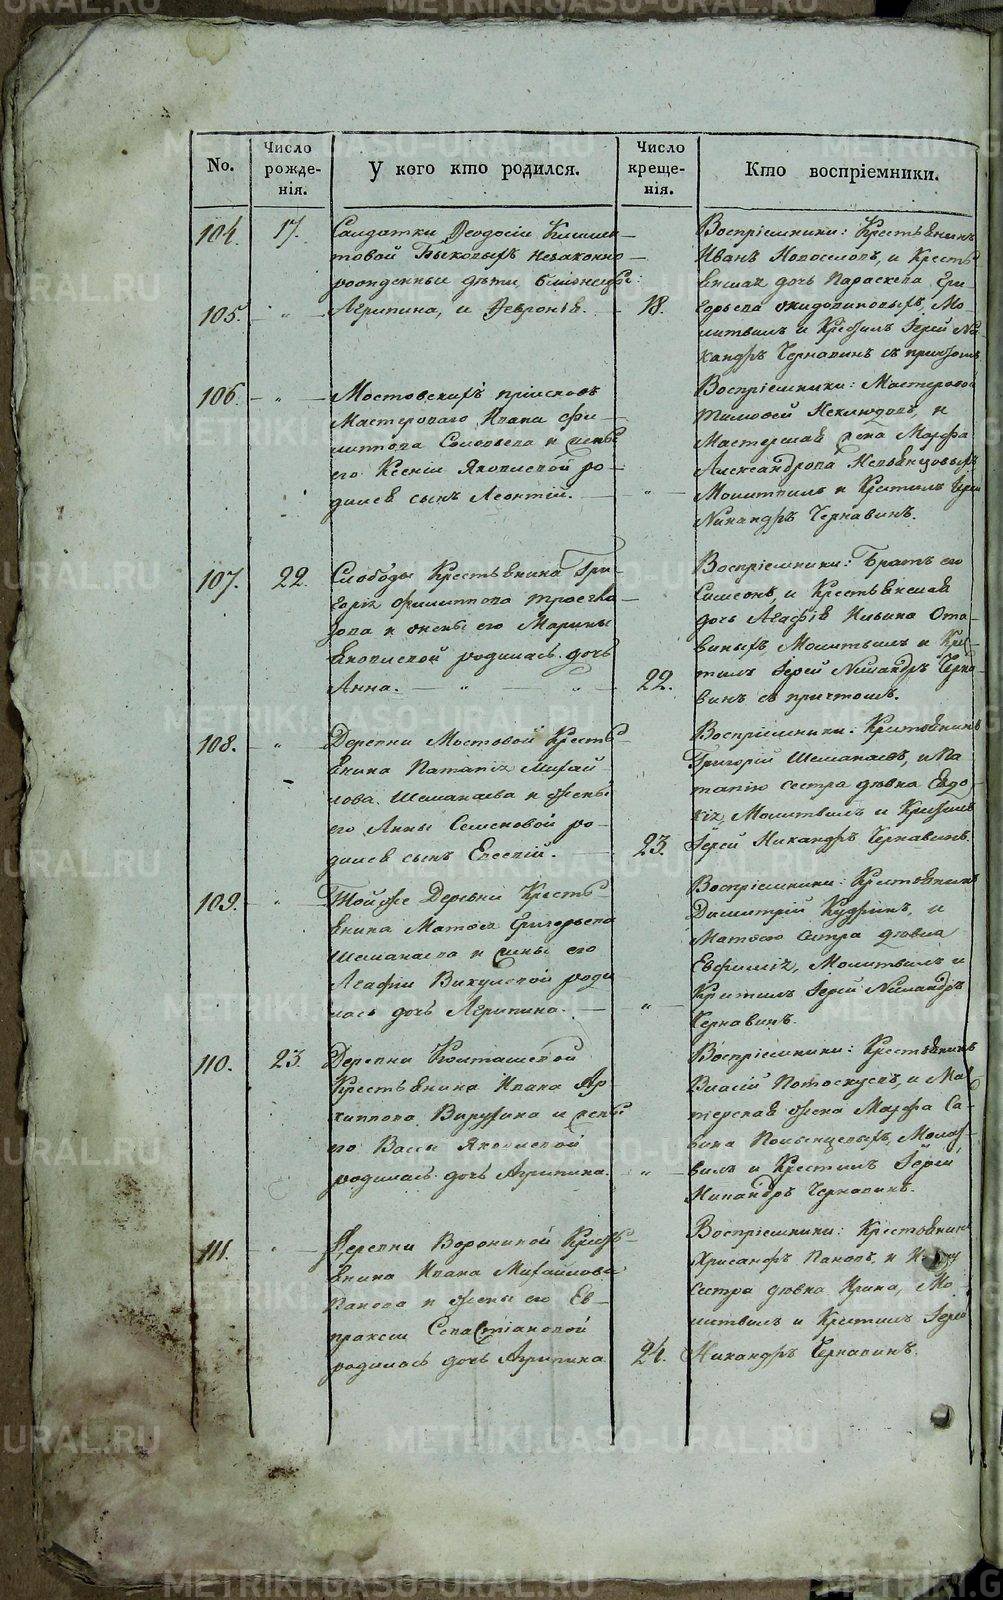 No.
Число рожде-нія.
У кого кто родился.
Число креще-нія.
Кто воспріемники.
104. 17.
Солдатки Ѳеодосіи Климен-
товой Быковыхъ незаконно-
рожденныи дѣти, близнецы:
105. — „ —
Агрипина, и Ѳевронія. — 18.
Воспріемники: Крестьянинъ
Иванъ Новоселовъ, и Кресть
янская дочь Параскева Гри
горьева Мо
литвилъ и Крестилъ Іерей Ни
кандръ Чернавинъ съ причтомъ.
106. — „ —
Мостовскихъ пріисковъ
Мастероваго Ивана Фи-
липпова Соловьева и жены
его Ксеніи Яковлевой ро-
дился сынъ Леонтій. — „ —
Воспріемники: Мастеровой
Тимофей Неклюдовъ, и
Мастерская жена Марфа
Александрова
Молитвилъ и Крестилъ Іерей
Никандръ Чернавинъ.
107. 22.
Слободы Крестьянина Гри-
горія Филиппова
и жены его Марины
Яковлевой родилась дочь
Анна. — „ — „ — 22.
Воспріемники: Братъ его
Симеонъ, и Крестьянская
дочь Агафія Ильина Ота-
виныхъ, Молитвилъ и Кре
тилъ Іерей Никандръ Черна-
винъ съ причтомъ.
108. „
Деревни Мостовой Кресть-
янина Потапія Михай
лова Шеманаева и жены
его Анны Семеновой ро-
дился сынъ Евсевій. 23.
Воспріемники: Крестьянинъ
Григорій Шеманаевъ, и По
тапію сестра дѣвка Евдо
кія, Молитвилъ и Крестилъ
Іерей Никандръ Чернавинъ.
109. — „ —
Той же Деревни Кресть
янина Матѳея Григорьева
Шеманаева и жены его
Агафіи Викуловой роди
лась дочь Агрипина. — „ —
Воспріемники: Крестьянинъ
Димитрій Кудринъ, и
Матѳею сестра дѣвка
Евфимія, Молитвилъ и
Крестилъ Іерей Никандръ
Чернавинъ.
110. 23.
Деревни
Крестьянина Ивана Ар
хиппова и жены
его Вассы Яковлевой
родилась дочь Агрипина. — „ —
Воспріемники: Крестьянинъ
Власій Потоскуевъ, и Мас
терская жена Марфа Са-
вина Молит-
вилъ и Крестилъ Іерей
Никандръ Чернавинъ.
111. — „ —
Деревни Ворониной Кресть
янина Ивана Михайлова
Панова и жены его Ев-
праксіи Севастіановой
родилась дочь Агрипина 24.
Воспріемники: Крестьянинъ
Хрисанфъ Пановъ, и
сестра дѣвка Ирина, Мо-
литвилъ и Крестилъ Іерей
Никандръ Чернавинъ.
METRIKI.GASO-URAL.RU